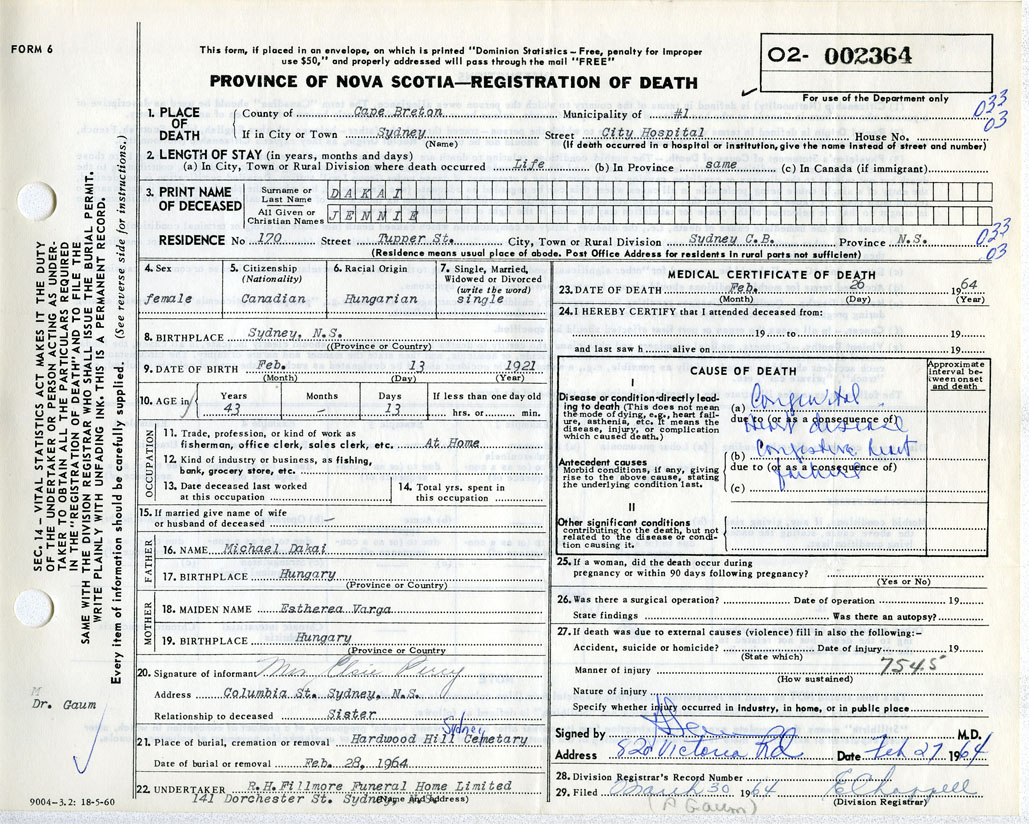 FORM 6
This form, if placed in an envelope, on which is printed "Dominion Statistics – Free, penalty for improper
use $50," and properly addressed will pass through the mail "FREE"
PROVINCE OF NOVA SCOTIA—REGISTRATION OF DEATH
02- 002364
For use of the Department only
033
03
1. PLACE OF DEATH
County of Cape Breton Municipality of #1
If in City or Town Sydney Street City Hospital House No.
(Name) (If death occurred in a hospital or institution, give the name instead of street and number)
2. LENGTH OF STAY (in years, months and days)
(a) In City, Town or Rural Division where death occurred Life (b) In Province same (c) In Canada (if immigrant)
3. PRINT NAME OF DECEASED
Surname or Last Name DAKAI
All Given or Christian Names JENNIE
033
03
RESIDENCE No 170 Street Tupper St. City, Town or Rural Division Sydney C.B. Province N.S.
(Residence means usual place of abode. Post Office Address for residents in rural parts not sufficient)
4. Sex
female
5. Citizenship
(Nationality)
Canadian
6. Racial Origin
Hungarian
7. Single, Married,
Widowed or Divorced
(write the word)
single
8. BIRTHPLACE Sydney, N.S.
((Province or Country)
9. DATE OF BIRTH Feb. 13 1921
(Month) (Day) (Year)
10. AGE in
Years Months Days If less than one day old
43 - 13 hrs. or min.
OCCUPATION
11. Trade, profession, or kind of work as
fisherman, office clerk, sales clerk, etc. At Home
12. Kind of industry or business, as fishing,
bank, grocery store, etc.
13. Date deceased last worked
at this occupation
14. Total yrs. spent in
this occupation
15. If married give name of wife
or husband of deceased -
FATHER
16. NAME Michael Dakai
17. BIRTHPLACE Hungary
(Province or Country)
MOTHER
18. MAIDEN NAME Estherea Varga
19. BIRTHPLACE Hungary
(Province or Country
20. Signature of informant Mrs
Address Columbia St. Sydney, N.S.
Relationship to deceased Sister
Sydney
21. Place of burial, cremation or removal Hardwood Hill Cemetary
Date of burial or removal Feb. 28, 1964
22. UNDERTAKER R.H. Fillmore Funeral Home Limited
141 Dorchester St. Sydney, N.S.
(Name and Address)
MEDICAL CERTIFICATE OF DEATH
23. DATE OF DEATH Feb. 26 1964
(Month) (Day) (Year)
24. I HEREBY CERTIFY that I attended deceased from:
19 to 19
and last saw h alive on 19
CAUSE OF DEATH
Approximate
interval be-
tween onset
and death
I
Disease or condition directly lead-
ing to death (This does not mean
the mode of dying, e.g., heart fail-
ure, asthenia, etc. It means the
disease, injury, or complication
which caused death.)
(a) Congenital
due to (or as a consequence of)
Heart disease
Antecedent causes
Morbid conditions, if any, giving
rise to the above cause, stating
the underlying condition last.
(b) Congestive heart
due to (or as a consequence of)
failure
(c)
II
Other significant conditions
contributing to the death, but not
related to the disease or condi-
tion causing it.
25. If a woman, did the death occur during
pregnancy or within 90 days following pregnancy?
(Yes or No)
26. Was there a surgical operation? Date of operation 19
State findings Was there an autopsy?
27. If death was due to external causes (violence) fill in also the following:–
Accident, suicide or homicide? Date of injury 19
(State which)
Manner of injury 7545
(How sustained)
Nature of injury
Specify whether injury occurred in industry, in home, or in public place
Signed by M.D.
Address 520 Victoria Rd Date Feb 27 1964
28. Division Registrar's Record Number
29. Filed March 30 1964 E Chappell
(A Gaum) (Division Registrar)
SEC. 14 – VITAL STATISTICS ACT MAKES IT THE DUTY
OF THE UNDERTAKER OR PERSON ACTING AS UNDER-
TAKER TO OBTAIN ALL THE PARTICULARS REQUIRED
IN THE "REGISTRATION OF DEATH" AND TO FILE THE
SAME WITH THE DIVISION REGISTRAR WHO SHALL ISSUE THE BURIAL PERMIT.
WRITE PLAINLY WITH UNFADING INK. THIS IS A PERMANENT RECORD.
Every item of information should be carefully supplied. (See reverse side for instructions.)
M
Dr. Gaum
9004-3.2: 18-5-60